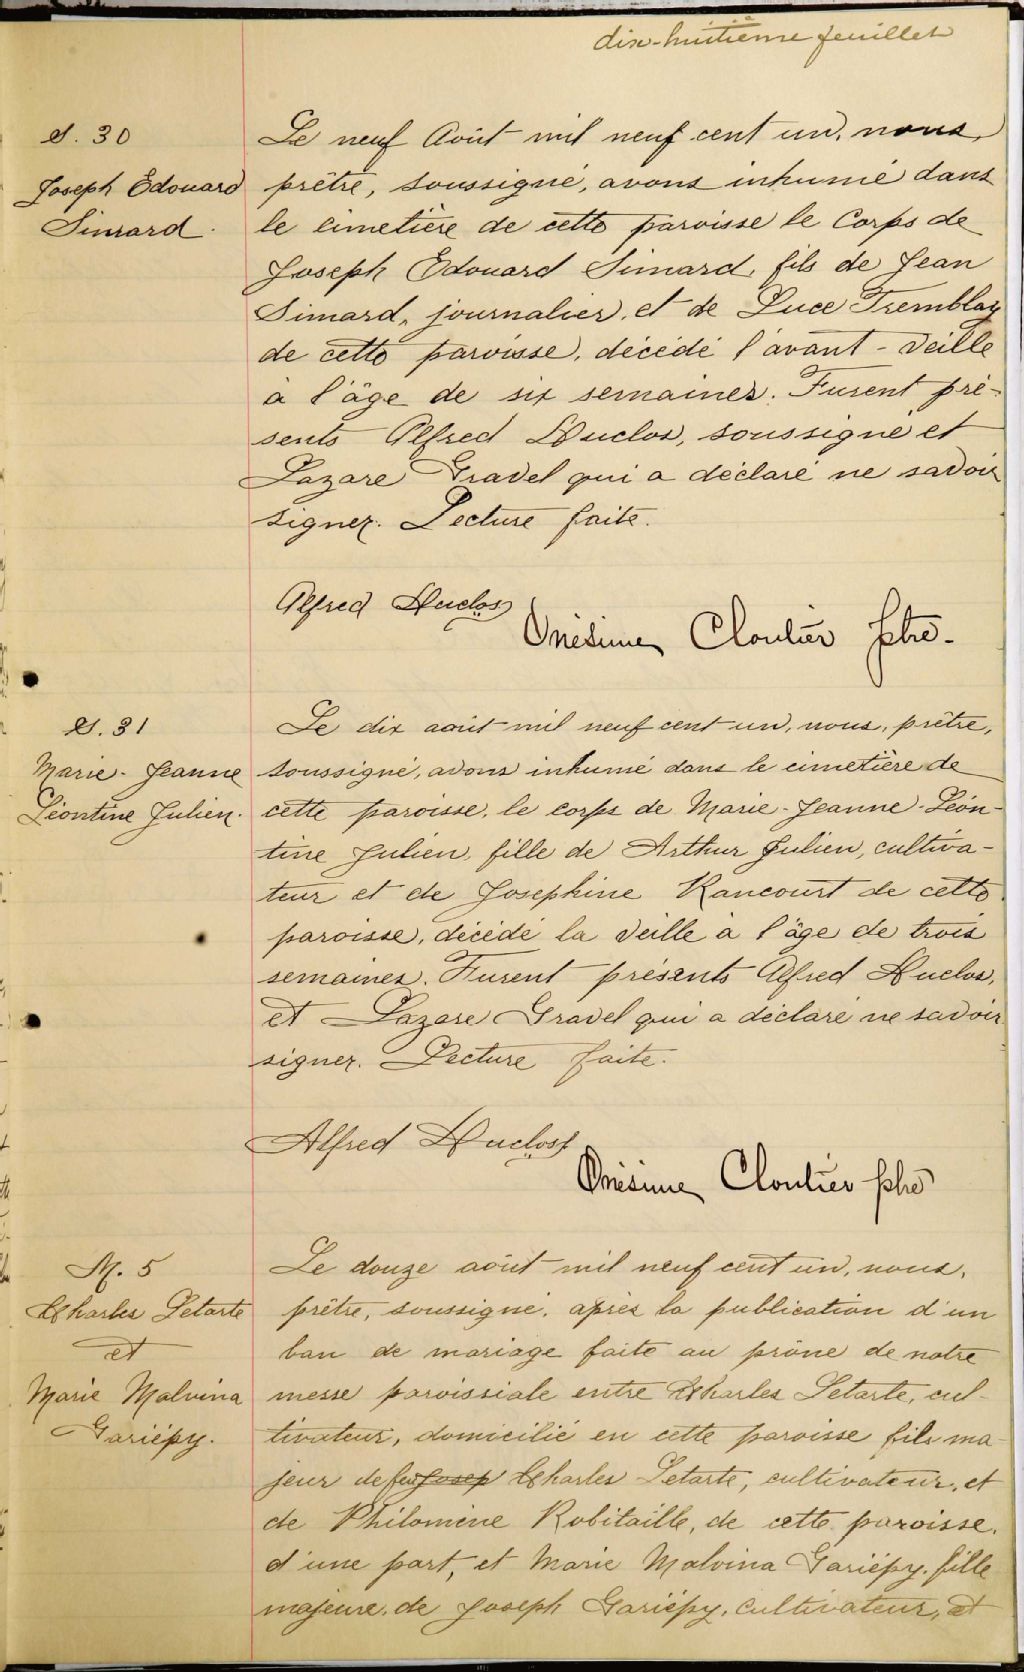 dix-huitième feuillet
S. 30
Joseph Edouard
Simard.
Le neuf Août mil neuf cent un, nous,
prêtre, soussigné, avons inhumé dans
le cimetière de cette paroisse le Corps de
Joseph Edouard Simard, fils de Jean
Simard, journalier, et de Luce Tremblay
de cette paroisse, décédé l'avant-veille
à l'âge de six semaines. Furent pré-
sents Alfred Huclos, soussigné et
Lazare Gravel qui a déclaré ne savoir
signer. Lecture faite.
Alfred Huclos
Onésime Cloutier ptre-
S. 31
Marie-Jeanne
Léontine Julien.
Le dix août mil neuf cent un, nous, prêtre,
soussigné, avons inhumé dans le cimetière de
cette paroisse, le corps de Marie-Jeanne-Léon-
tine Julien, fille de Arthur Julien, cultiva-
teur et de Josephine Rancourt de cette
paroisse, décédé la veille à l'âge de trois
semaines. Furent présents Alfred Huclos,
et Lazare Gravel qui a déclaré ne savoir
signer. Lecture faite.
Alfred Huclos
Onésime Cloutier ptre
M. 5
Charles Letarte
et
Marie Malvina
Gariépy.
Le douze août mil neuf cent un, nous,
prêtre, soussigné, après la publication d'un
ban de mariage faite au prône de notre
messe paroissiale entre Charles Letarte, cul-
tivateur, domicilié en cette paroisse fils ma-
jeur de feu Josep Charles Letarte, cultivateur, et
de Philomène Robitaille, de cette paroisse,
d'une part, et Marie Malvina Gariépy, fille
majeure, de Joseph Gariépy, cultivateur, et